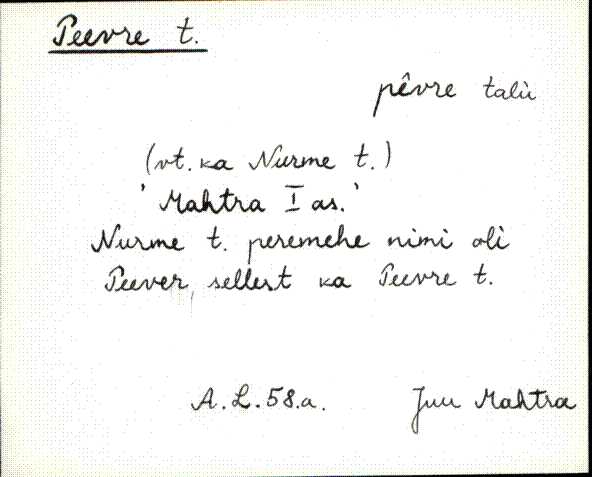 Peevre t.
pêvre talù
(vt. ka Nurme t.)
'Mahtra I as.'
Nurme t. peremehe nimi oli
Peever, sellest ka Peevre t.
A.L.58.a. Juu Mahtra